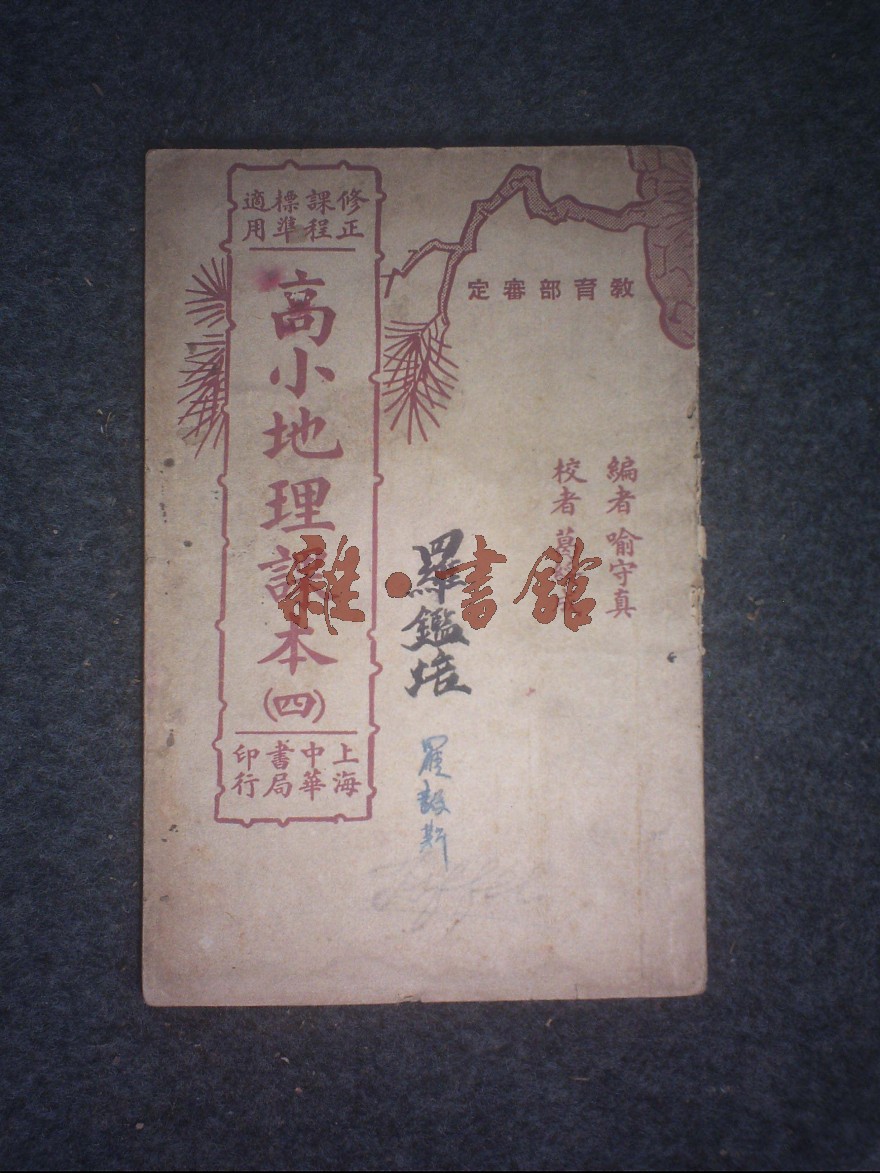 教育部審定
編者 喻守真
校者 葛
修正課程標準適用
高小地理課本
(四)
上海中華書局印行
羅鑑培
雜·書館